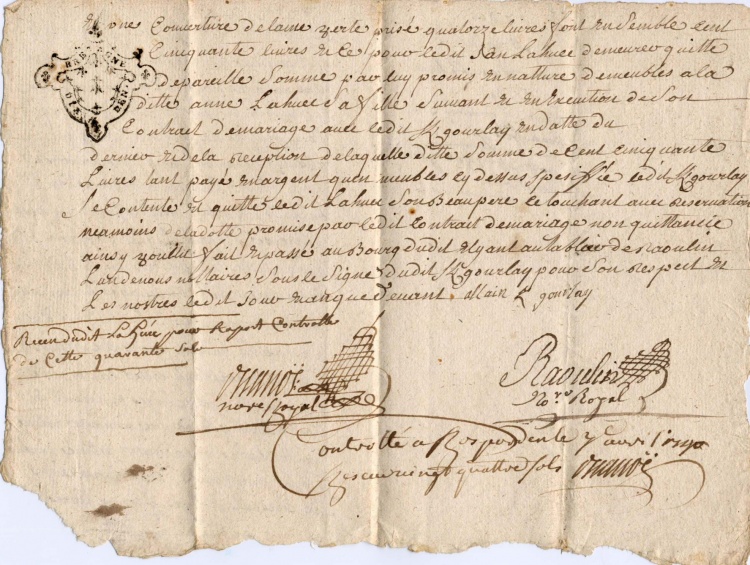 et une Couverture de laine verte prisé quatorze livres font ensemble cent
Cinquante livres de ce pour ledit Jan Lahuec demeurer quitte
de pareille Somme par luy promis en natture de meubles a la
ditte anne Lahuec sa fille Suivant et en execution de Son
Contract de mariage avec ledit gourlay en datte du
dernier et de la reception de laquelle ditte Somme de Cent Cinquante
Livres tant payé en argent qu'en meubles cy dessus speciffié ledit gourlay
Se Contente et quitte ledit Lahuec Son Beau pere le touchant avec reservation
neamoins de la dotte promise par ledit Contrait de mariage non quittancée
ainsy voullu fait et passé au Bourg dudit au tablao de Raoulin
L'un de nous nottaires Sous le Signe dudit gourlay pour Son respect et
Les nostres ledit jour et an que devant. allain gourlay
BRETAGNE
DIX DEN
Receu dudit La hüec pour Raport Controlle
de Cette quarante Sols
nore Royal
Raoulin
No.re Royal
Controllé a 7 avril
Receu vingt quattre sols